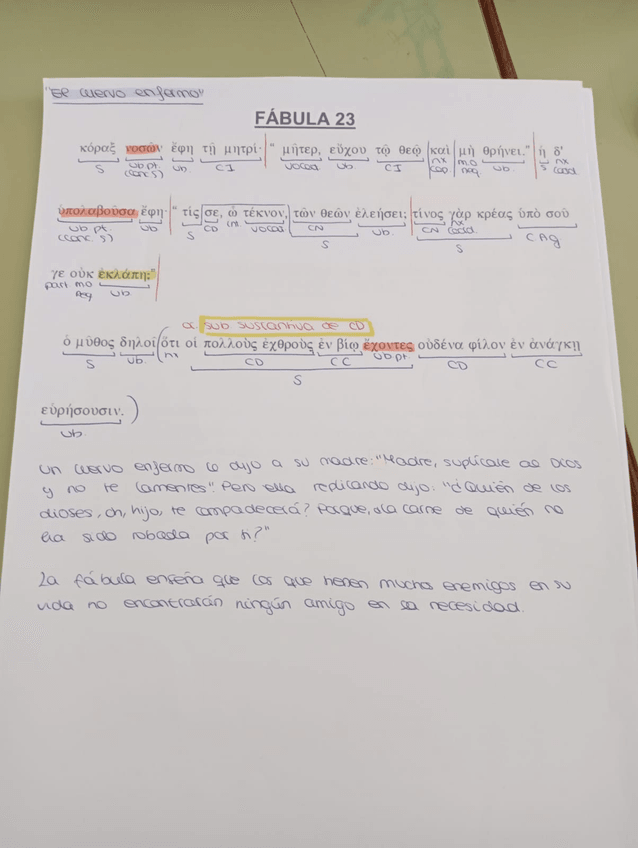 "El cuervo enfermo"
FÁBULA 23
κόραξ νοσῶν ἔφη τῇ μητρί· " μῆτερ, εὔχου τῷ θεῷ καὶ μὴ θρήνει." ἡ δ'
S vb pt. (conc S) vb. CI vocat vb. CI nx cop mo neg. vb. S nx coord.
ὑπολαβοῦσα ἔφη· " τίς σε, ὦ τέκνον, τῶν θεῶν ἐλεήσει; τίνος γὰρ κρέας ὑπὸ σοῦ
vb pt. (conc. S) vb S CD int. vocat CN S vb. CN nx coord. S C Ag
γε οὐκ ἐκλάπη;"
part mo neg vb.
or sub sustantiva de CD
ὁ μῦθος δηλοῖ (ὅτι οἱ πολλοὺς ἐχθροὺς ἐν βίῳ ἔχοντες οὐδένα φίλον ἐν ἀνάγκῃ
S vb. nx CD CC vb pt. S CD CC
εὑρήσουσιν. )
vb.
Un cuervo enfermo le dijo a su madre: "Madre, suplícale al Dios
y no te lamentes". Pero ella replicando dijo: "¿Quién de los
dioses, oh, hijo, te compadecerá? Porque, ¿la carne de quién no
ha sido robada por ti?"
La fábula enseña que los que tienen muchos enemigos en su
vida no encontrarán ningún amigo en la necesidad.